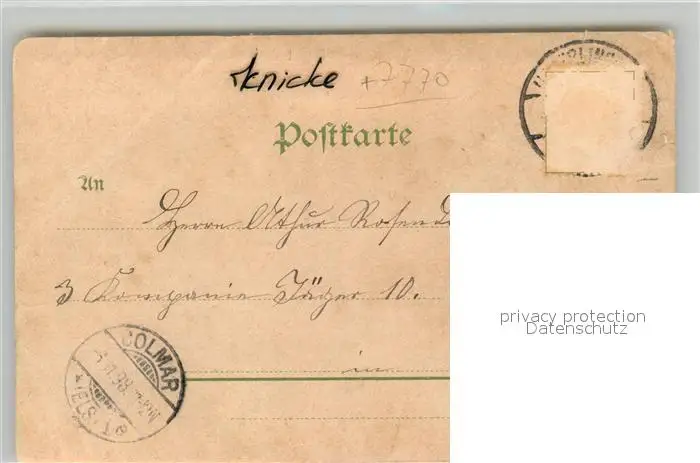 knicke +7770
Postkarte
An
Herrn Athur Rosen
3 Kompanie Jäger 10.
in
COLMAR
privacy protection
Datenschutz